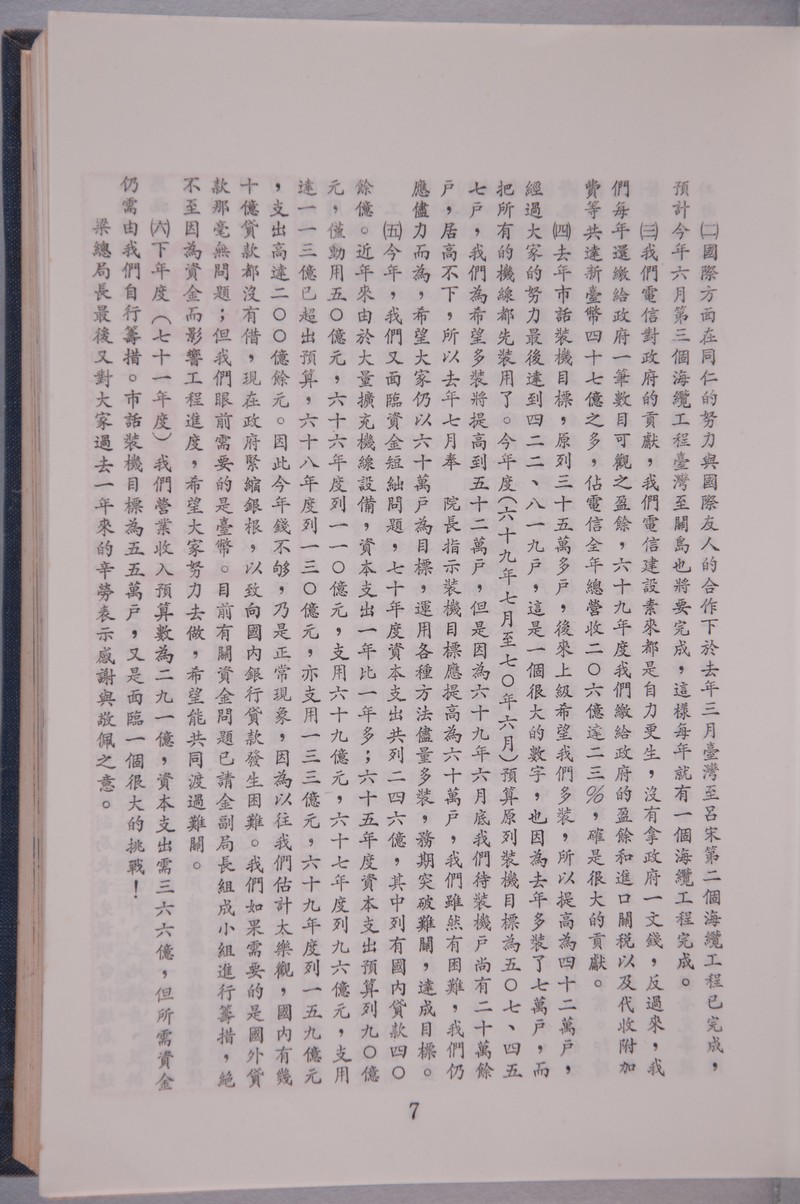 ㈡國際方面在同仁的努力與國際友人的合作下於去年三月臺灣至呂宋第二個海纜工程已完成，
預計今年六月第三個海纜工程臺灣至關島也將要完成，這樣每年就有一個海纜工程完成。
㈢我們電信對政府的貢獻，我們電信建設素來都是自力更生，沒有拿政府一文錢，反過來，我
們每年還繳給政府一筆數目可觀之盈餘，六十九年度我們繳給政府的盈餘和進口關稅以及代收附加
費等共達新臺幣四十七億之多，佔電信全年總營收二○六億達二三%，確是很大的貢獻。
㈣去年市話裝機目標，原列三十五萬多戶，後來上級希望我們多裝，所以提高為四十二萬戶，
經過大家的努力最後達到四二二、八一九戶，這是一個很大的數字，也因為去年多裝了七萬戶，而
把所有的機線都先裝用了。今年度（六十九年七月至七○年六月）預算原列裝機目標為五○七、四五
七戶，我們為希望多裝將提高到五十二萬戶，但是因為六十九年六月底我們待裝機戶尚有二十萬餘
戶，居高不下，所以去年七月奉　院長指示裝機目標應提高為六十萬戶，我們雖然有困難，我們仍
應儘力而為，希望大家仍以六十萬戶為目標，運用各種方法儘量多裝，務期突破難關，達成目標。
㈤今年，我們又面臨資金短絀問題，七十年度資本支出共列二四六億，其中列有國內貸款四○
餘億。近年來由於大量擴充機線設備，資本支出一年比一年多；六十五年度資本支出預算列九○億
元，僅動用五○億元，六十六年度列一一○億元，支用六十九億元，六十七年度列九六億元，支用
達一一三億已超出預算，六十八年度列一三○億元，亦支用一三三億元，六十九年度列一五九億元
，支出高達二○○億餘元。因此今年錢不夠，乃是正常現象，因為以往我們估計太樂觀，國內有幾
十億貸款都沒有借，現在政府緊縮銀根，以致向國內銀行貸款發生困難。我們如果需要的是國外貸
款那毫無問題；但我們眼前需要的是臺幣。目前有關資金問題已請金副局長組成小組進行籌措，絕
不至因為資金而影響工程進度，希望大家努力去做，希望能共同渡過難關。
㈥下年度（七十一年度）我們營業收入預算數為二九一億，資本支出需三六六億，但所需資金
仍需由我們自行籌措。市話裝機目標為五五萬戶，又是面臨一個很大的挑戰！
梁總局長最後又對大家過去一年來的辛勞表示感謝與敬佩之意。
7